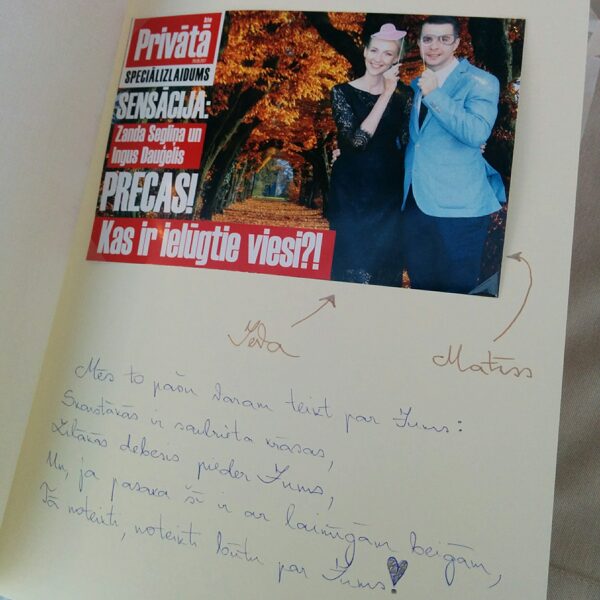 Privātā
Dzīve
SPECIĀLIZLAIDUMS
SENSĀCIJA:
Zanda Segliņa un
Ingus Dauģelis
PRECAS!
Kas ir ielūgtie viesi?!
Ieva
Matīss
Mēs to pašu varam teikt par Jums:
Skaistākās ir saulrieta krāsas,
Zilākās debesis pieder Jums,
Un, ja pasaka šī ir ar laimīgām beigām,
Tā noteikti, noteikti būtu par Jums!